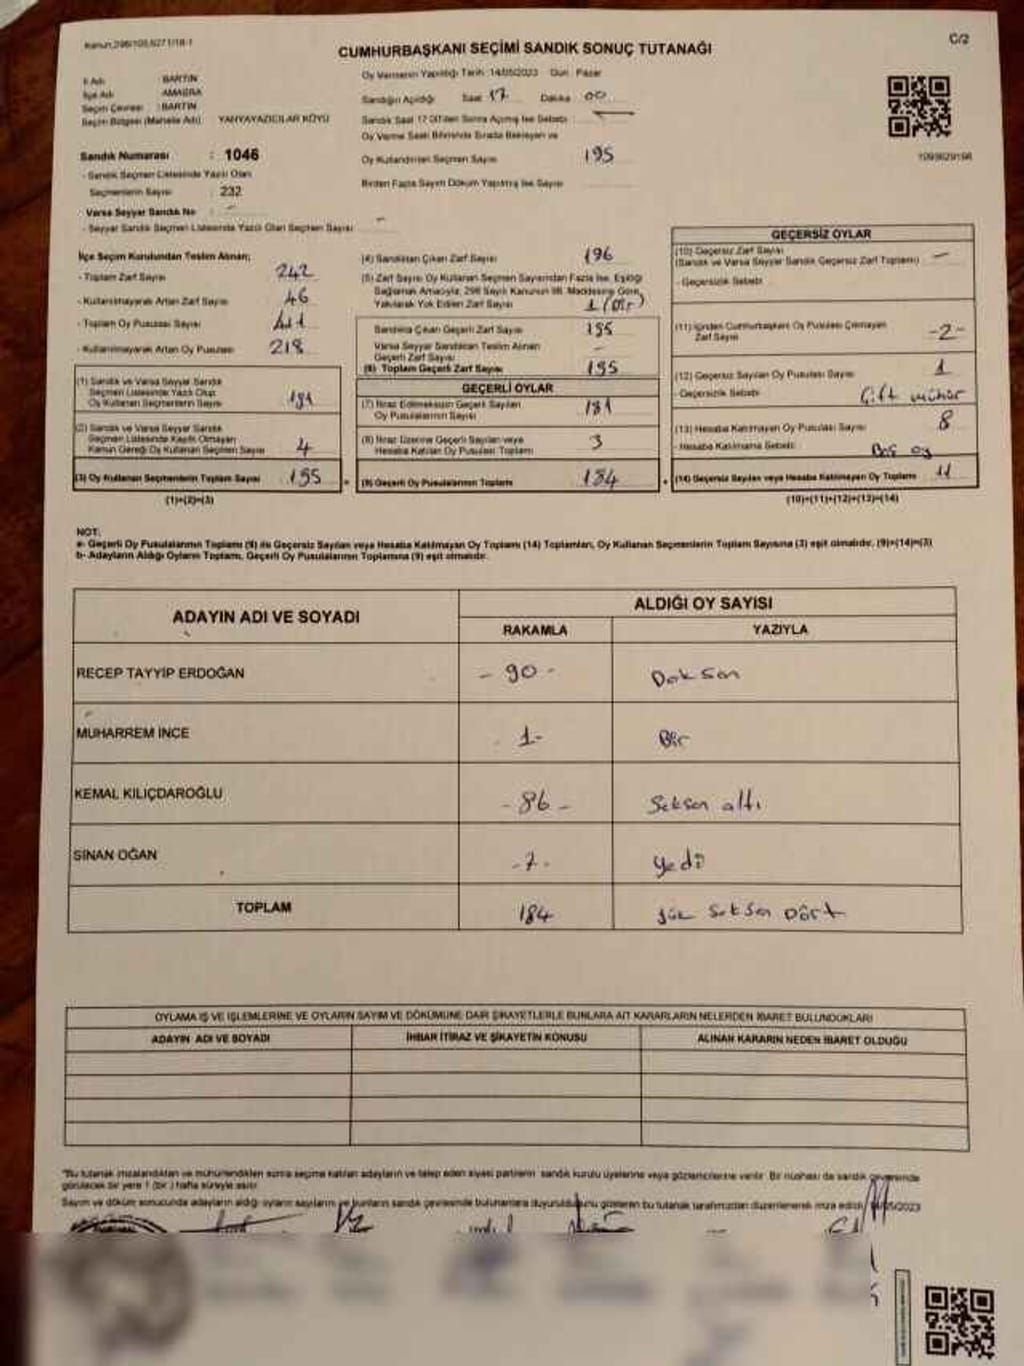 Kanun:298/105,6271/18-1
C/2
CUMHURBAŞKANI SEÇİMİ SANDIK SONUÇ TUTANAĞI
İl Adı : BARTIN
İlçe Adı : AMASRA
Seçim Çevresi : BARTIN
Seçim Bölgesi (Mahalle Adı) YAHYAYAZICILAR KÖYÜ
Sandık Numarası : 1046
- Sandık Seçmen Listesinde Yazılı Olan
Seçmenlerin Sayısı : 232
Varsa Seyyar Sandık No : -
- Seyyar Sandık Seçmen Listesinde Yazılı Olan Seçmen Sayısı : -
Oy Vermenin Yapıldığı Tarih : 14/05/2023 Gün : Pazar
Sandığın Açıldığı Saat 17 Dakika 00
Sandık Saat 17.00'den Sonra Açılmış İse Sebebi :
Oy Verme Saati Bitiminde Sırada Bekleyen ve
Oy Kullandırılan Seçmen Sayısı 195
Birden Fazla Sayım Döküm Yapılmış İse Sayısı
1093629198
İlçe Seçim Kurulundan Teslim Alınan;
- Toplam Zarf Sayısı 242
- Kullanılmayarak Artan Zarf Sayısı 46
- Toplam Oy Pusulası Sayısı
- Kullanılmayarak Artan Oy Pusulası 218
(1) Sandık ve Varsa Seyyar Sandık
Seçmen Listesinde Yazılı Olup
Oy Kullanan Seçmenlerin Sayısı 191
(2) Sandık ve Varsa Seyyar Sandık
Seçmen Listesinde Kayıtlı Olmayan
Kanun Gereği Oy Kullanan Seçmen Sayısı 4
(3) Oy Kullanan Seçmenlerin Toplam Sayısı 195
(1)+(2)=(3)
(4) Sandıktan Çıkan Zarf Sayısı 196
(5) Zarf Sayısı Oy Kullanan Seçmen Sayısından Fazla İse, Eşitliği
Sağlamak Amacıyla, 298 Sayılı Kanunun 98. Maddesine Göre,
Yakılarak Yok Edilen Zarf Sayısı 1 (Bir)
Sandıkta Çıkan Geçerli Zarf Sayısı 195
Varsa Seyyar Sandıktan Teslim Alınan
Geçerli Zarf Sayısı -
(6) Toplam Geçerli Zarf Sayısı 195
GEÇERLİ OYLAR
(7) İtiraz Edilmeksizin Geçerli Sayılan
Oy Pusulalarının Sayısı 181
(8) İtiraz Üzerine Geçerli Sayılan veya
Hesaba Katılan Oy Pusulası Toplamı 3
(9) Geçerli Oy Pusulalarının Toplamı 184
GEÇERSİZ OYLAR
(10) Geçersiz Zarf Sayısı
(Sandık ve Varsa Seyyar Sandık Geçersiz Zarf Toplamı) -
- Geçersizlik Sebebi:
(11) İçinden Cumhurbaşkanı Oy Pusulası Çıkmayan
Zarf Sayısı -2-
(12) Geçersiz Sayılan Oy Pusulası Sayısı 1
- Geçersizlik Sebebi: Çift mühür
(13) Hesaba Katılmayan Oy Pusulası Sayısı 8
- Hesaba Katılmama Sebebi: Boş oy
(14) Geçersiz Sayılan veya Hesaba Katılmayan Oy Toplamı 11
(10)+(11)+(12)+(13)=(14)
NOT:
a- Geçerli Oy Pusulalarının Toplamı (9) ile Geçersiz Sayılan veya Hesaba Katılmayan Oy Toplamı (14) Toplamları, Oy Kullanan Seçmenlerin Toplam Sayısına (3) eşit olmalıdır. (9)+(14)=(3)
b- Adayların Aldığı Oyların Toplamı, Geçerli Oy Pusulalarının Toplamına (9) eşit olmalıdır.
ADAYIN ADI VE SOYADI
ALDIĞI OY SAYISI
RAKAMLA YAZIYLA
RECEP TAYYİP ERDOĞAN - 90 - Doksan
MUHARREM İNCE 1- Bir
KEMAL KILIÇDAROĞLU - 86 - Seksen altı
SİNAN OĞAN -7- yedi
TOPLAM 184 Yüz Seksen Dört
OYLAMA İŞ VE İŞLEMLERİNE VE OYLARIN SAYIM VE DÖKÜMÜNE DAİR ŞİKAYETLERLE BUNLARA AİT KARARLARIN NELERDEN İBARET BULUNDUKLARI
ADAYIN ADI VE SOYADI İHBAR İTİRAZ VE ŞİKAYETİN KONUSU ALINAN KARARIN NEDEN İBARET OLDUĞU
*Bu tutanak imzalandıktan ve mühürlendikten sonra seçime katılan adayların ve talep eden siyasi partilerin sandık kurulu üyelerine veya gözlemcilerine verilir. Bir nüshası da sandık çevresinde
görülecek bir yere 1 (bir ) hafta süreyle asılır.
Sayım ve döküm sonucunda adayların aldığı oyların sayılarını ve bunların sandık çevresinde bulunanlara duyurulduğunu gösteren bu tutanak tarafımızdan düzenlenerek imza edildi.